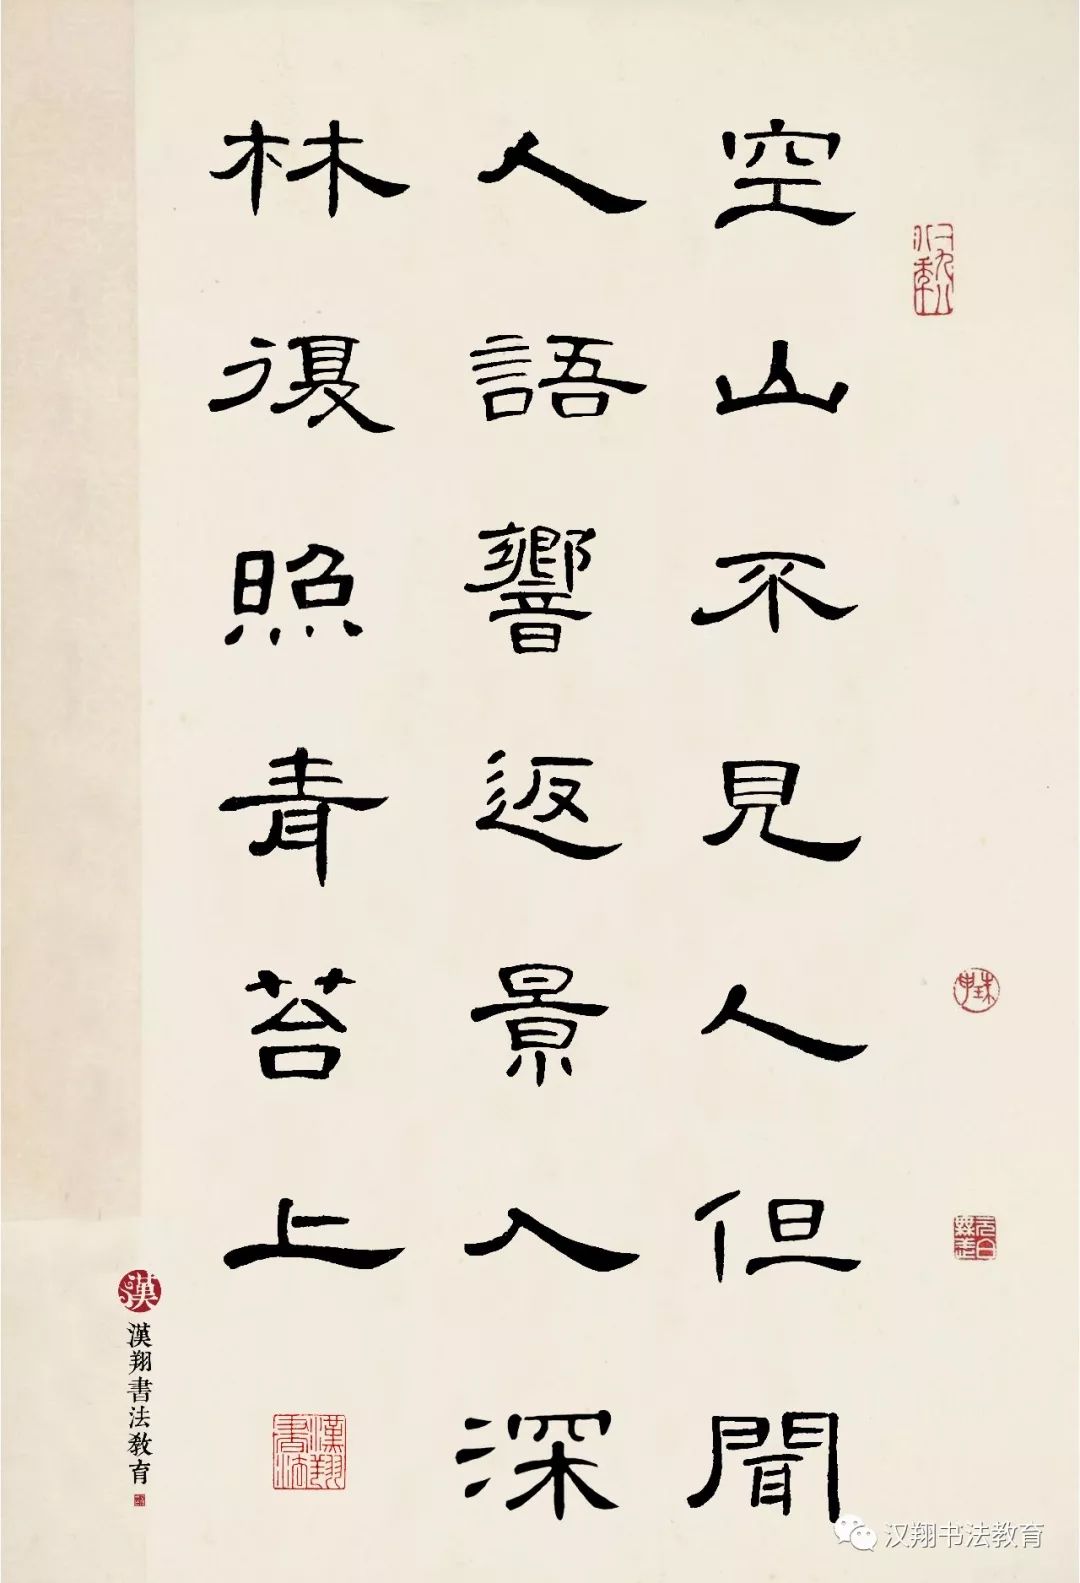 空山不見人但聞
人語響返景入深
林復照青苔上
漢
漢翔書法教育
漢翔書法
汉翔书法教育